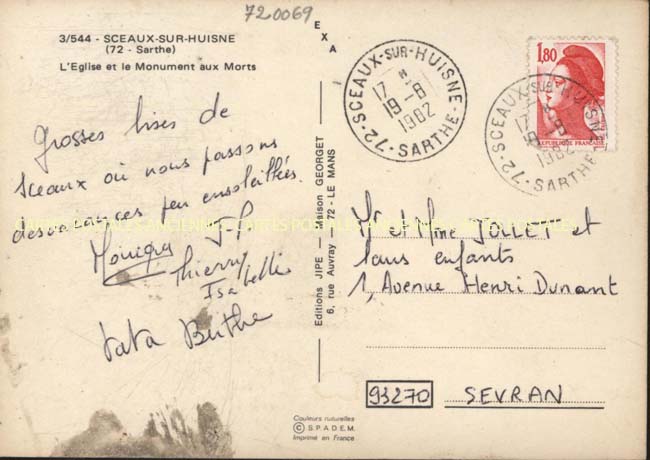 720069
3/544 - SCEAUX-SUR-HUISNE
(72 - Sarthe)
L'Eglise et le Monument aux Morts
EXA
Grosses bises de
Sceaux où nous passons
des vacances peu ensoleillées.
Monique J-P
Thierry
Isabelle
tata Berthe
Editions JIPE — Maison GEORGET
6, rue Auvray — 72 - LE MANS
72 - SCEAUX-SUR-HUISNE - SARTHE
17 H
19-8
1982
1,80
REPUBLIQUE FRANCAISE
72 - SCEAUX-SUR-HUISNE - SARTHE
17 H
1982
Mr et Mme JOLLET et
leurs enfants
1, Avenue Henri Dunant
93270 SEVRAN
Couleurs naturelles
© S.P.A.D.E.M.
Imprimé en France
CARTES POSTALES ANCIENNES